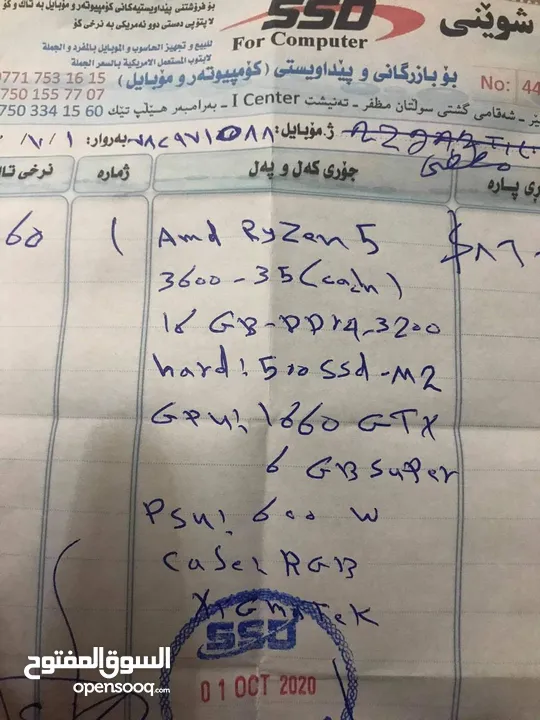 شوێنی
SSD
For Computer
بۆ فرۆشتنی پێداویستیەکانی کۆمپیوتەر و مۆبایل بە تاک و کۆ
لاپتۆپی دەستی دوو ئەمریکی بە نرخی کۆ
للبيع و تجهيز الحاسوب و الموبايل بالمفرد و الجملة
لابتوب المستعمل الامريكية بالسعر الجملة
بۆ بازرگانی و پێداویستی (کۆمپیوتەر و مۆبایل)
No: 44
0771 753 16 15
750 155 77 07
750 334 15 60
شەقامی گشتی سوڵتان مظفر - تەنیشت I Center - بەرامبەر
ژ.مۆبایل:
بەروار: ١ / ١ /
ڕی پارە
جۆری کەل و پەل
ژمارە
نرخی تاک
60
١
Amd RyZen 5
$٨٦٠
3600 - 35 (cach)
16 GB - DDr4 - 3200
hard: 500 SSd - M2
GPU: 1660 GTX
6 GB SuPer
PSU: 600 W
Case: RGB
XIGMATEK
SSD
01 OCT 2020
السوق المفتوح
opensooq.com